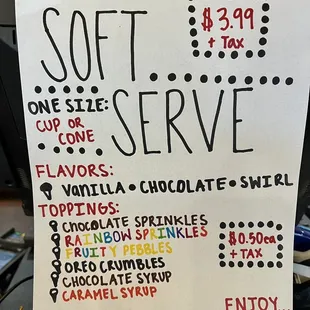 SOFT
$3.99
+ Tax
SERVE
ONE SIZE:
CUP OR
CONE
FLAVORS:
VANILLA • CHOCOLATE • SWIRL
TOPPINGS:
CHOCOLATE SPRINKLES
RAINBOW SPRINKLES
FRUITY PEBBLES
OREO CRUMBLES
CHOCOLATE SYRUP
CARAMEL SYRUP
$0.50ea
+ TAX
ENJOY...